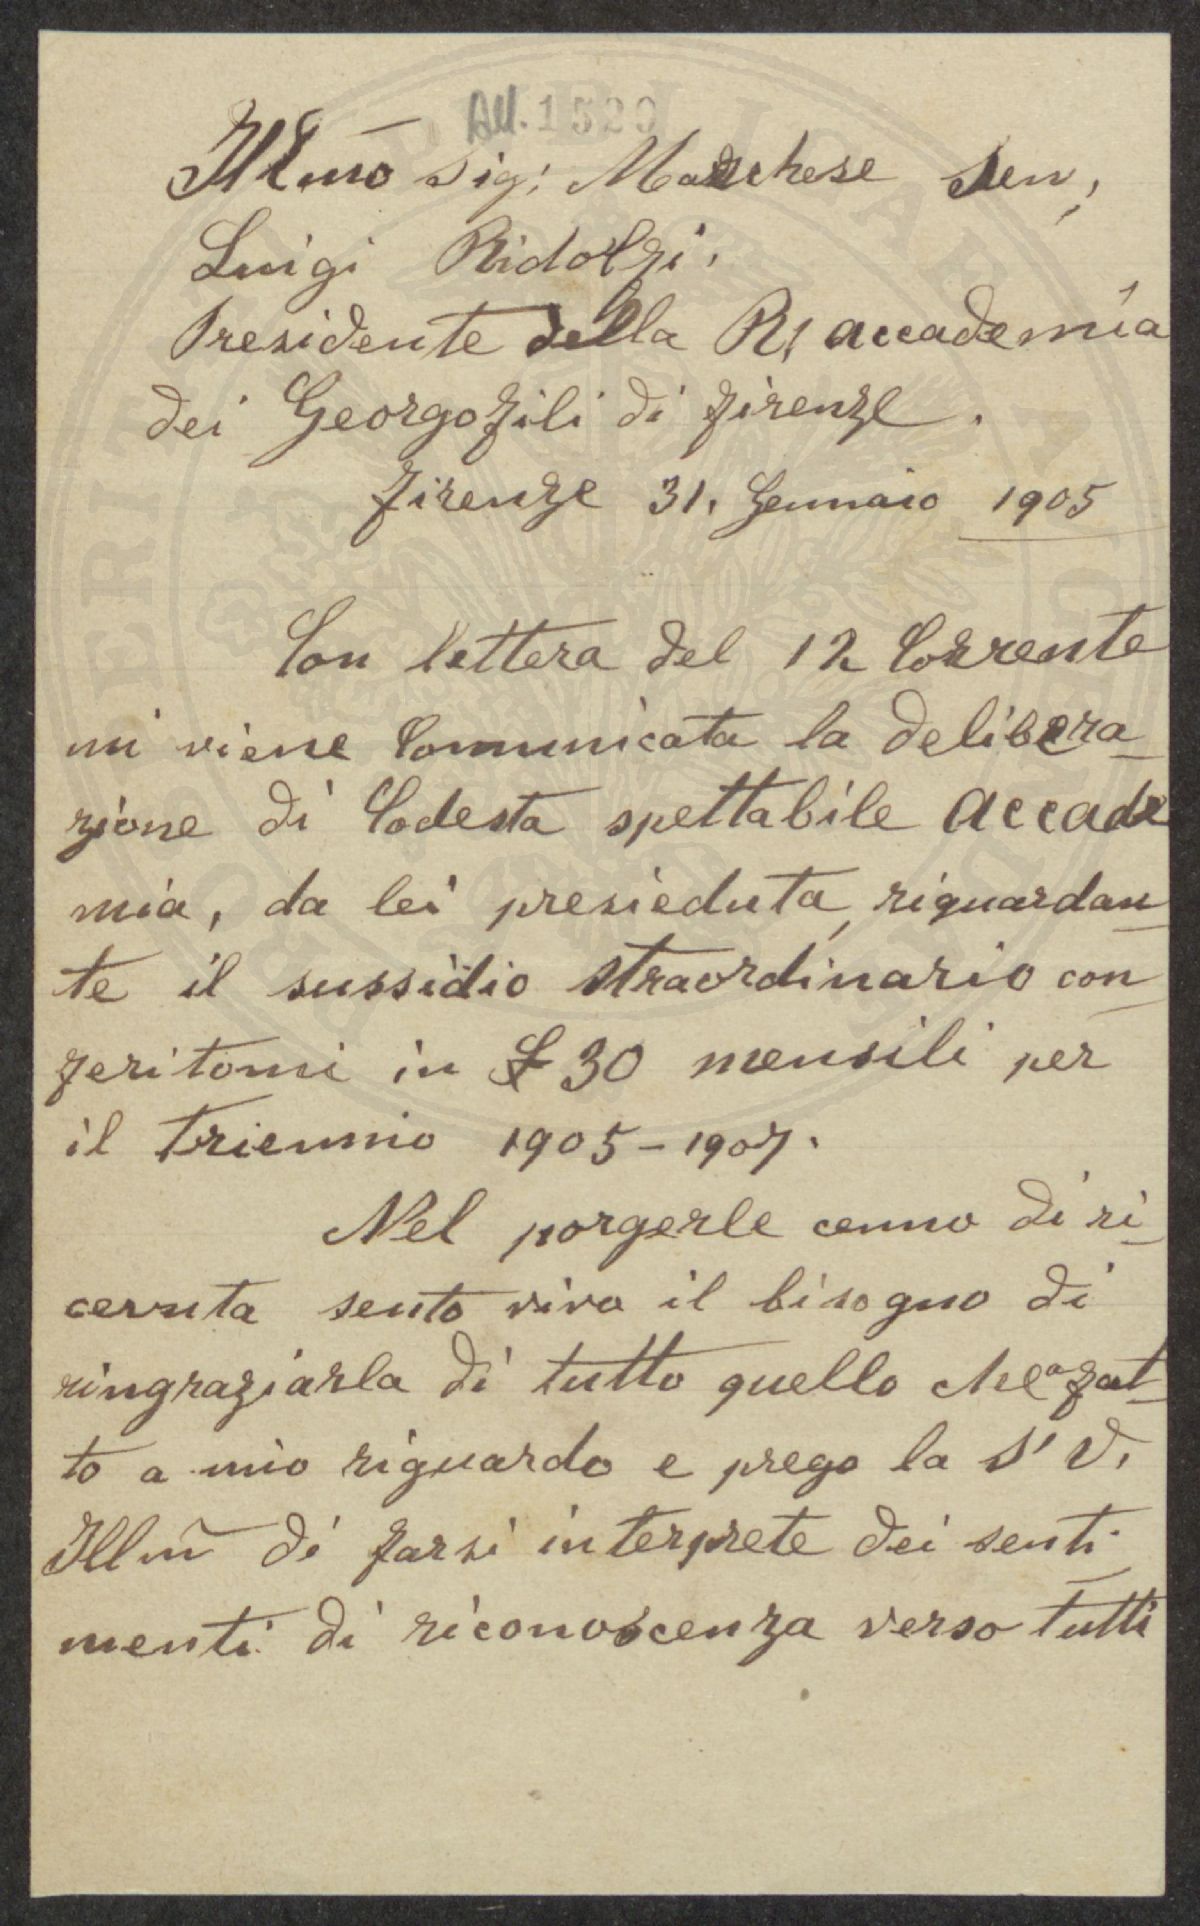 All. 1520
Illmo Sig; Marchese Sen;
Luigi Ridolfi.
Presidente della R. accademia
dei Georgofili di Firenze.
Firenze 31. Gennaio 1905
Con lettera del 12 Corrente
mi viene Comunicata la delibera
zione di Codesta spettabile accade
mia, da lei presieduta, riguardan
te il sussidio straordinario con
feritomi in £ 30 mensili per
il triennio 1905-1907.
Nel porgerle cenno di ri
cevuta sento vivo il bisogno di
ringraziarla di tutto quello che a fat
to a mio riguardo e prego la S' V.
Illm di farsi interprete dei senti
menti di riconoscenza verso tutti